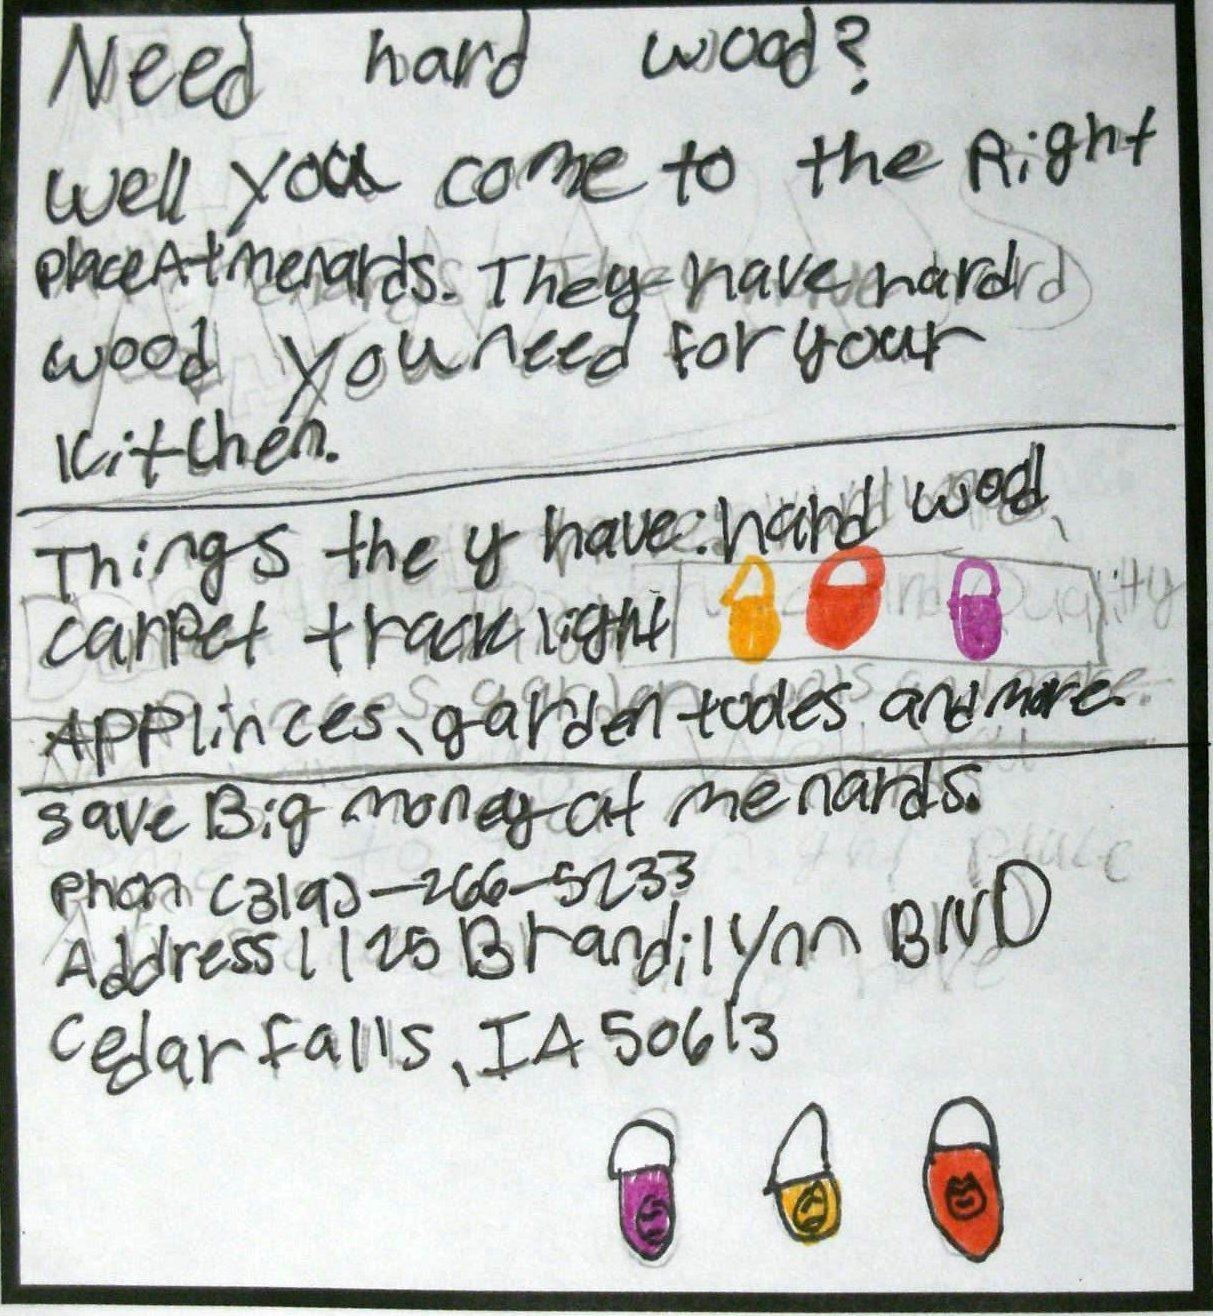 Need hard wood?
Well you come to the Right
place At menards. They have hard
wood you need for your
kitchen.
Things they have: hard wood,
carpet track light
Applinces, garden tooles and more.
save Big money at menards.
phon (319)-266-5233
Address 1125 Brandilynn BLVD
Cedar falls, IA 50613